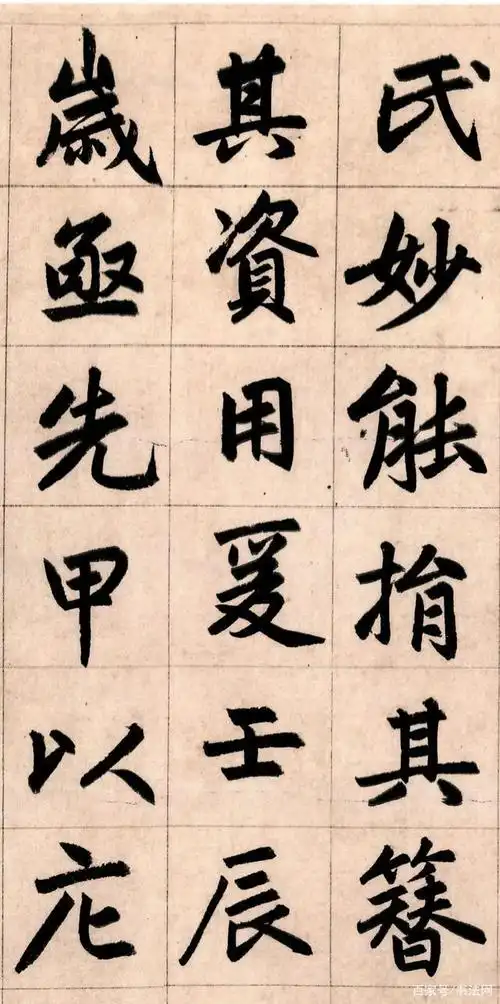 氏妙能捐其簪
其資用爰壬辰
歲亟先甲以庀
百家号/书法网